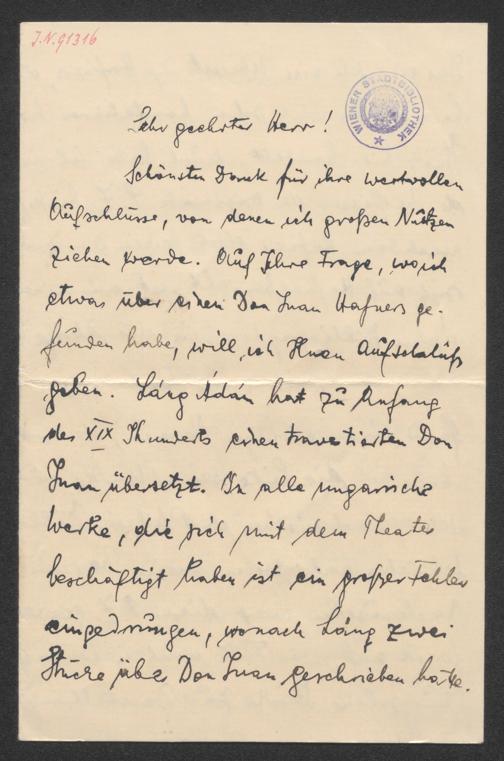 J.N. 91316
WIENER STADTBIBLIOTHEK
Sehr geehrter Herr!
Schönsten Dank für ihre wertvollen
Aufschlüsse, von denen ich großen Nutzen
ziehen werde. Auf Ihre Frage, wo ich
etwas über einen Don Juan Hafners ge-
funden habe, will ich Ihnen Aufschluß
geben. Láng Ádám hat zu Anfang
des XIX Jhunderts einen travestierten Don
Juan übersetzt. In alle ungarische
Werke, die sich mit dem Theater
beschäftigt haben ist ein großer Fehler
eingedrungen, wonach Láng zwei
Stücke über Don Juan geschrieben hatte.